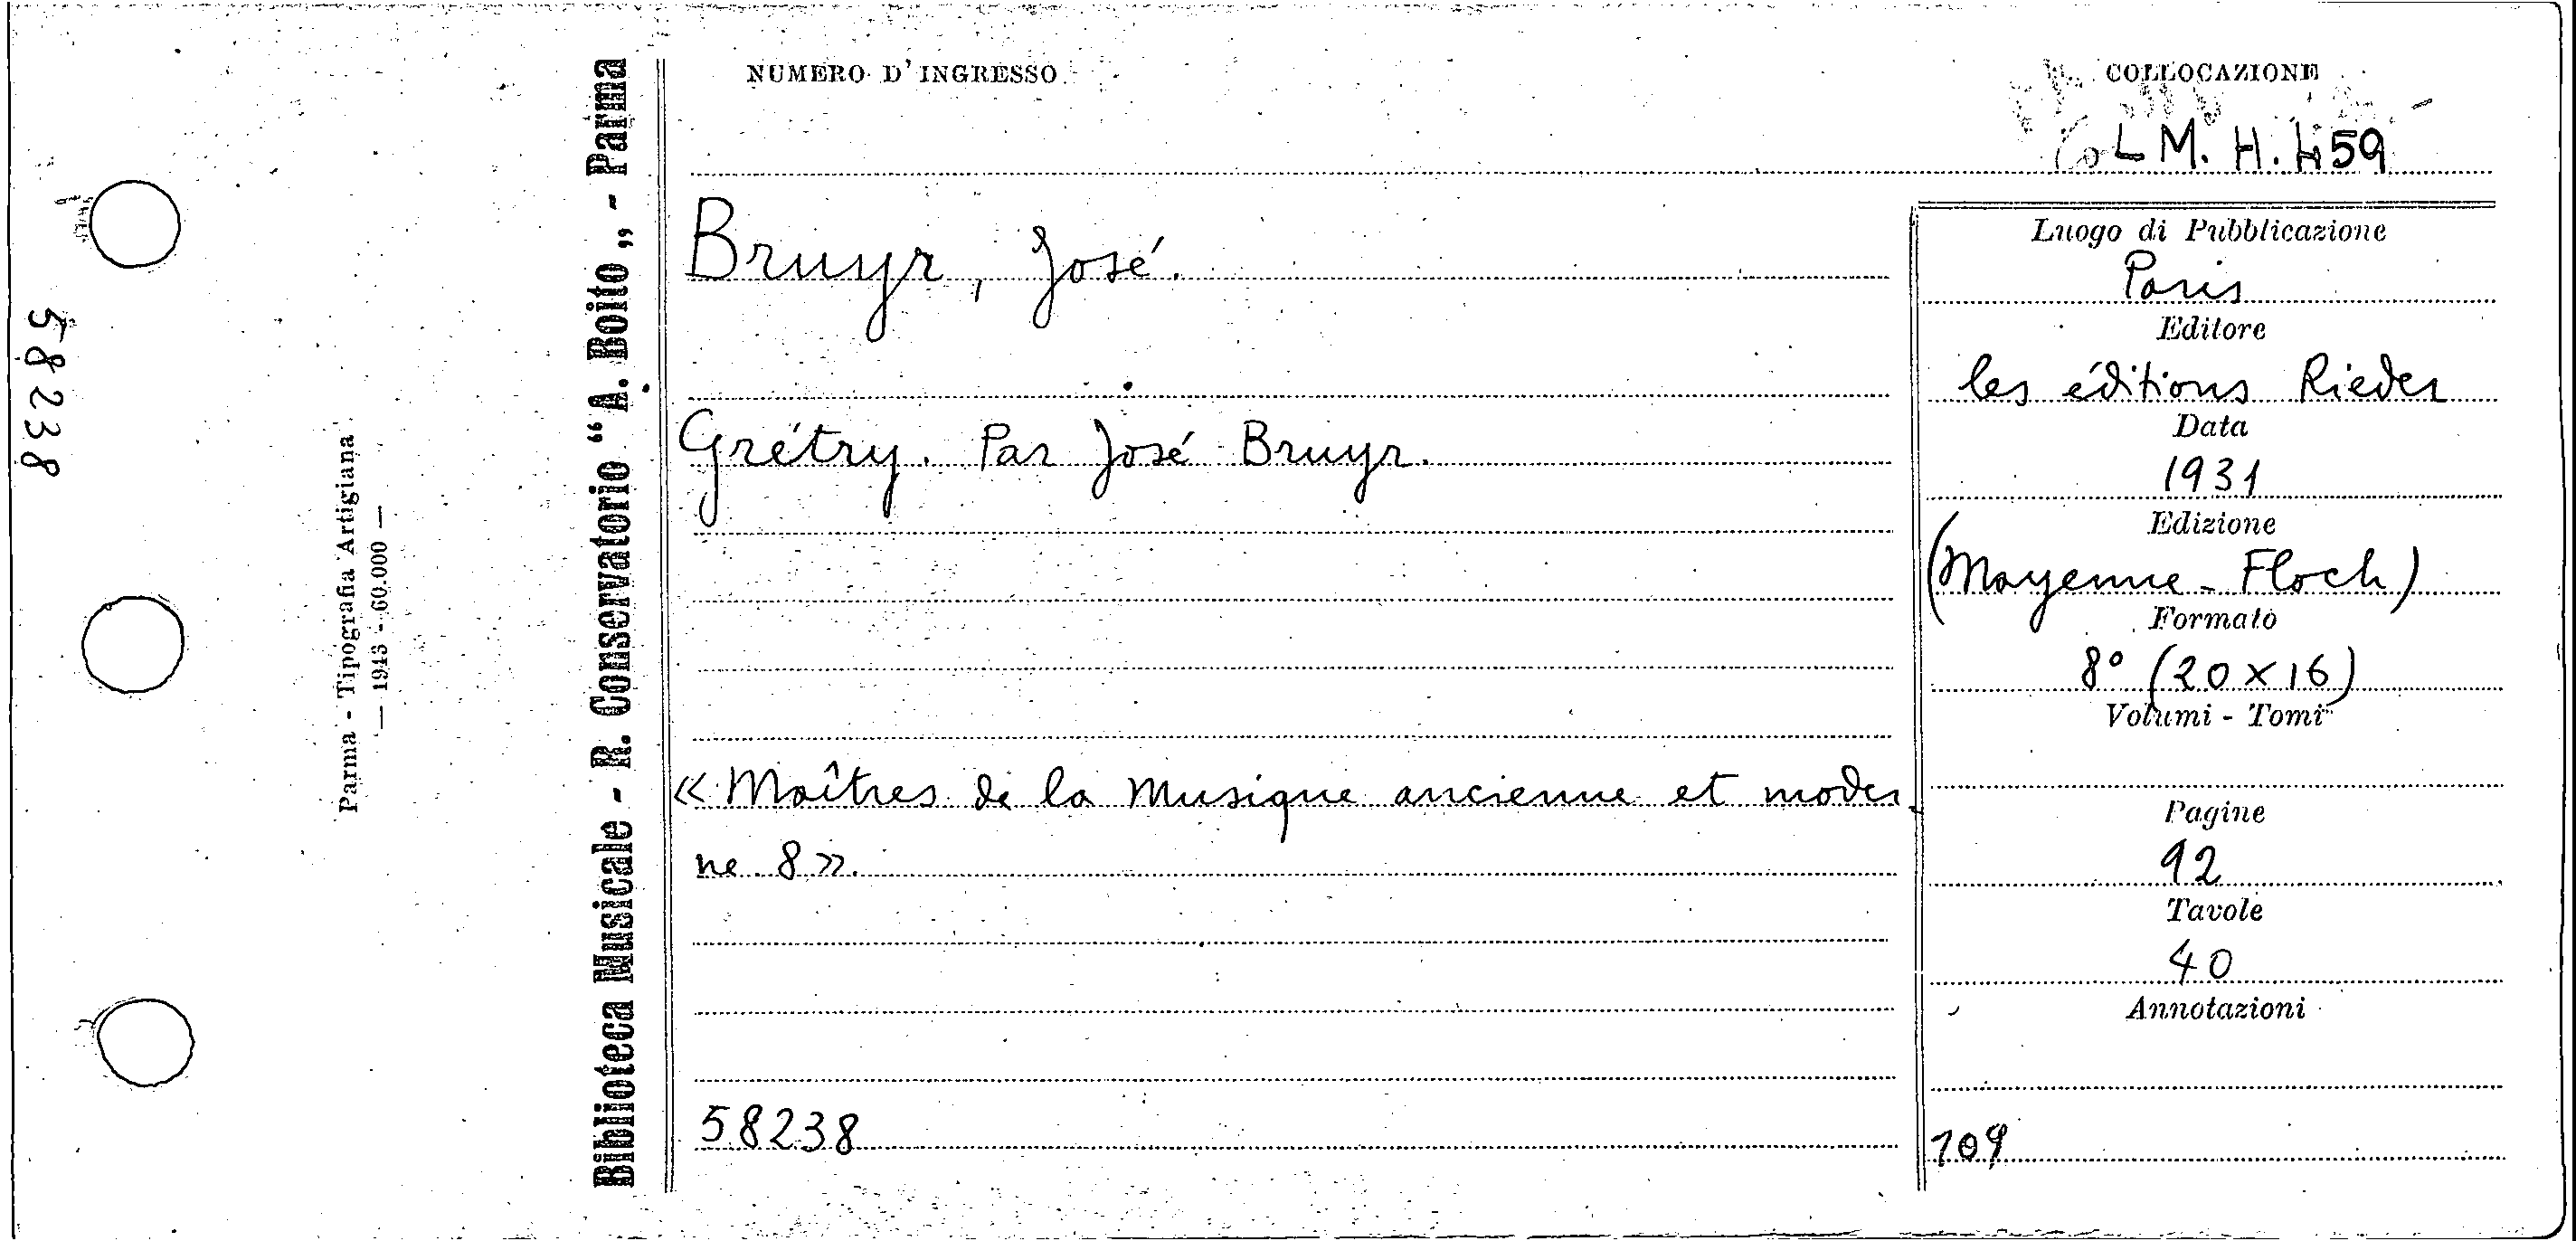 NUMERO D'INGRESSO
COLLOCAZIONE
L M. H. 459
Bruyr, José.
Grétry. Par José Bruyr.
« Maîtres de la Musique ancienne et moder-
ne. 8 ».
58238
Luogo di Pubblicazione
Paris
Editore
les éditions Rieder
Data
1931
Edizione
(Mayenne - Floch)
Formato
8° (20 x 16)
Volumi - Tomi
Pagine
92
Tavole
40
Annotazioni
109
Biblioteca Musicale - R. Conservatorio "A. Boito„ - Parma
Parma - Tipografia Artigiana
— 1943 - 60.000 —
58238